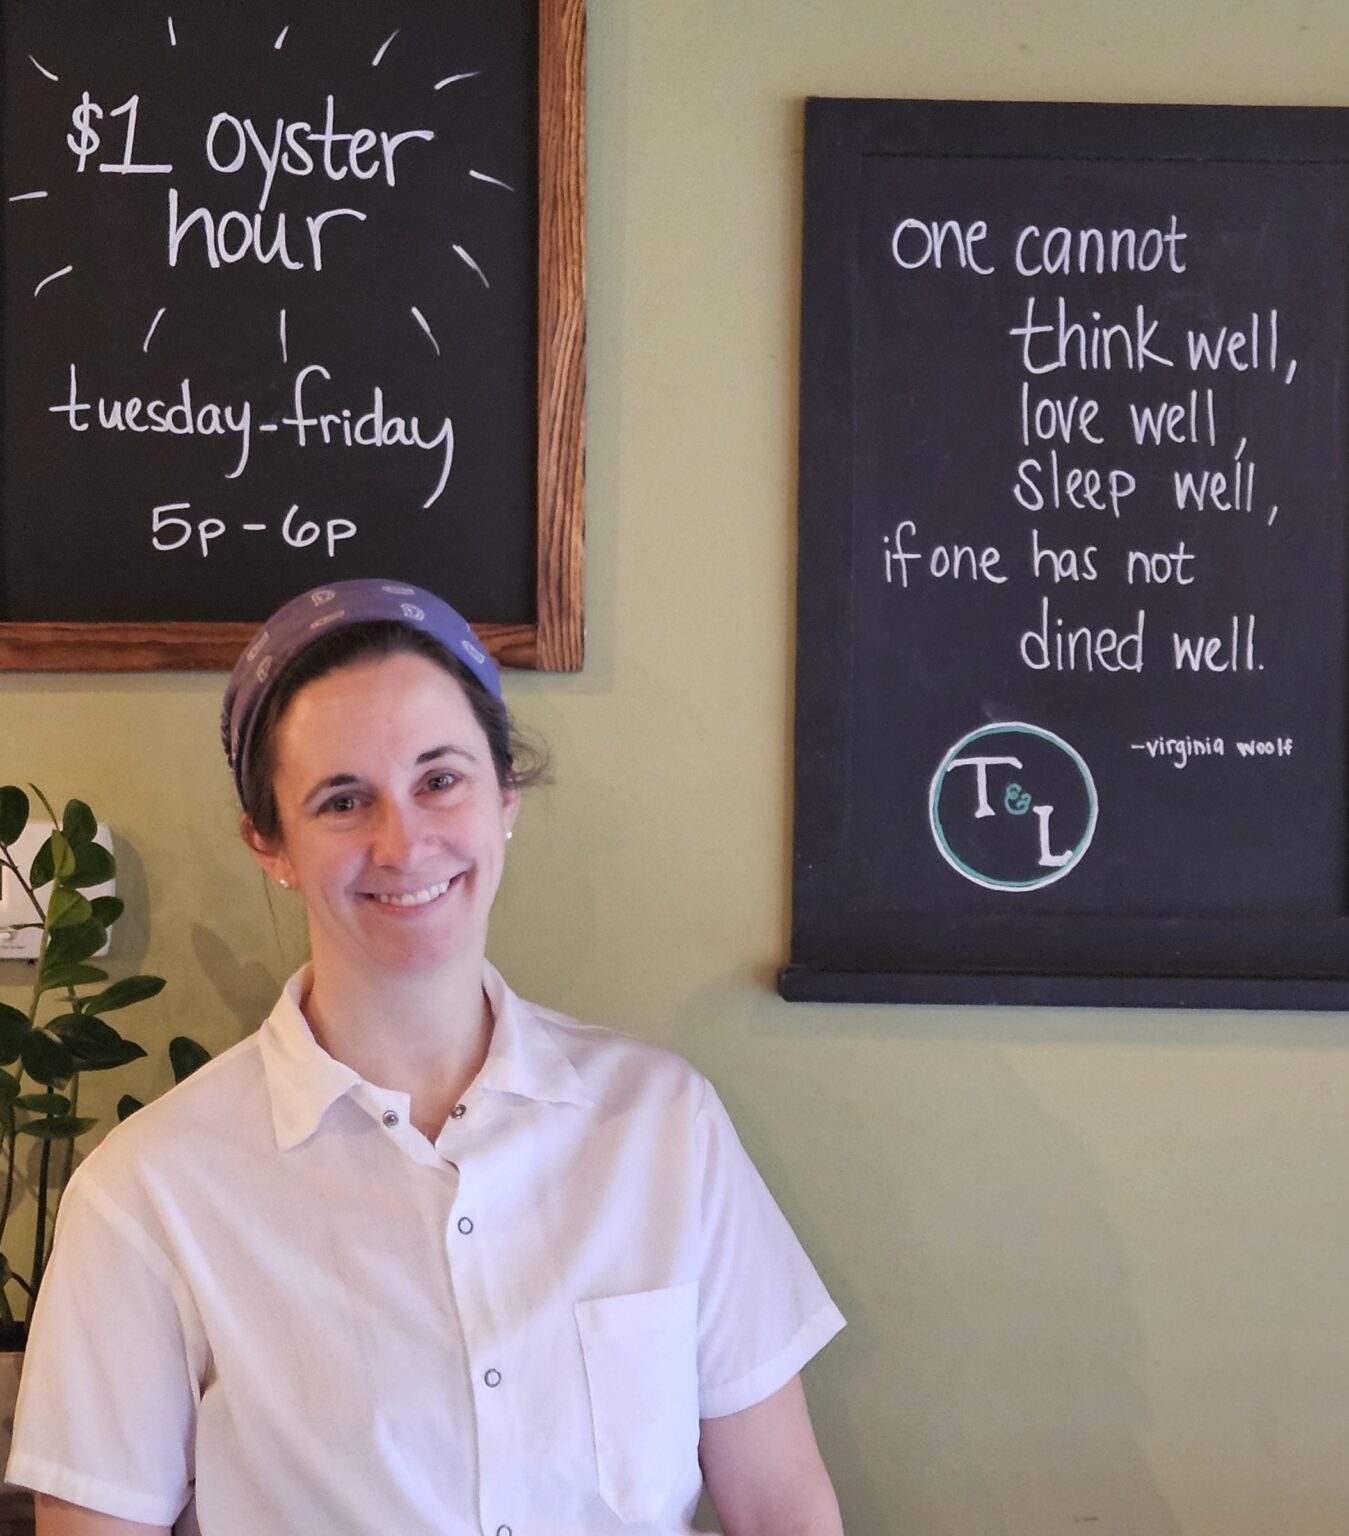 $1 oyster
hour
tuesday-friday
5p-6p
one cannot
think well,
love well,
sleep well,
if one has not
dined well.
-virginia woolf
T & L